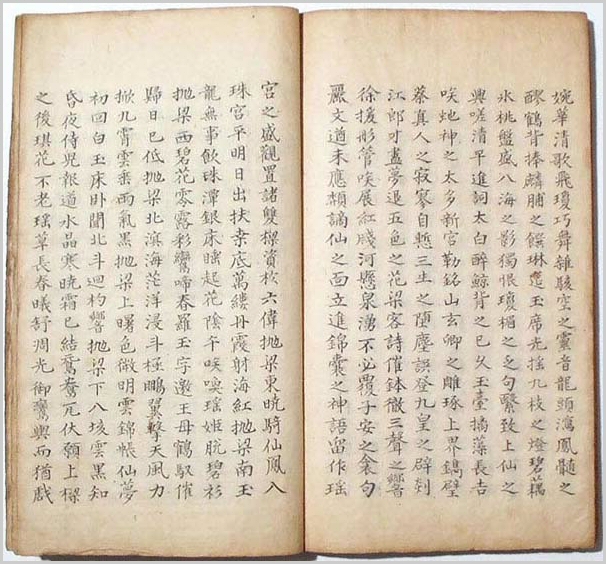 婉華清歌飛瓊巧舞雜駿空之靈音龍頭瀉鳳髓之
醪鶴背捧麟脯之饌琳筵玉席光搖九枝之燈碧藕
氷桃盤盛八海之影獨恨瓊楣之乏句繄致上仙之
興嗟清平進詞太白醉鯨背之已久玉臺摛藻長吉
唉虵神之太多新宮勒銘山玄卿之雕琢上界鐫璧
蔡真人之寂寥自慙三生之墮塵誤登九皇之辟剡
江郎才盡夢退五色之花梁客詩催鉢徹三聲之響
徐援彤管唉展紅牋河懸泉湧不必覆子安之衾句
麗文遒未應頮謫仙之面立進錦囊之神語留作瑤
宮之盛觀置諸雙樑資於六偉抛梁東曉騎仙鳳入
珠宮平明日出扶桒底萬縷丹霞射海紅抛梁南玉
龍無事飲珠潭銀床睡起花陰午唉喚瑤姬脫碧衫
抛梁西碧花零露彩鸞啼春羅玉字邀王母鶴馭催
歸日已低抛梁北溟海茫洋浸斗極鵬翼擊天風力
掀九霄雲垂雨氣黑抛梁上曙色微明雲錦帳仙夢
初回白玉床卧聞北斗廻杓響抛梁下八垓雲黑知
昏夜侍兒報道水晶寒曉霜已結鴛鴦瓦伏願上樑
之後琪花不老瑤草長春曦舒凋光御鸞輿而猶戲